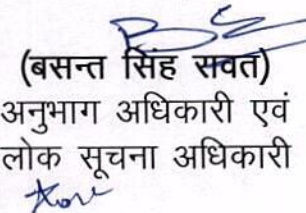 (बसन्त सिंह सवत)
अनुभाग अधिकारी एवं
लोक सूचना अधिकारी